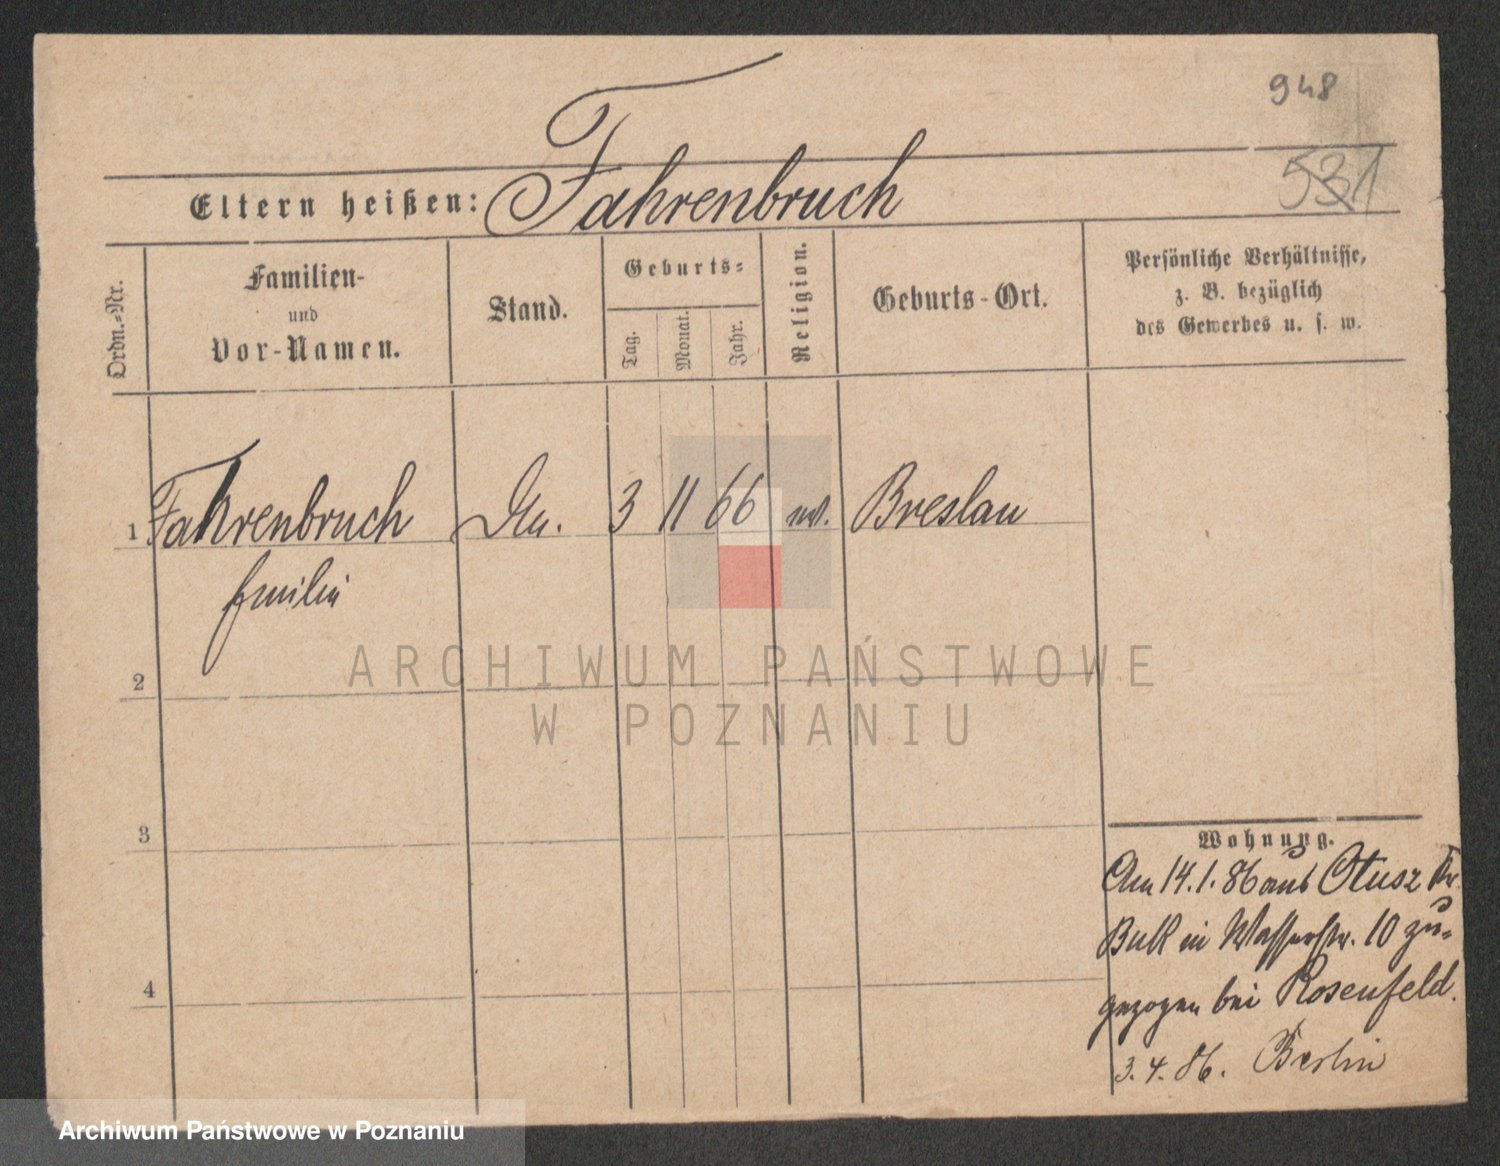 948
531
Eltern heißen: Fahrenbruch
Ordn.-Nr.
Familien-
und
Vor-Namen.
Stand.
Geburts-
Tag.
Monat.
Jahr.
Religion.
Geburts-Ort.
Persönliche Verhältnisse,
z. B. bezüglich
des Gewerbes u. s. w.
1 Fahrenbruch 3 11 66 Breslau
Emilie
2
3
4
Wohnung.
Am 14.1.86 aus Otusz Kr.
Buk in Wasserstr. 10 zu-
gezogen bei Rosenfeld.
3.4.86. Berlin
ARCHIWUM PAŃSTWOWE
W POZNANIU
Archiwum Państwowe w Poznaniu